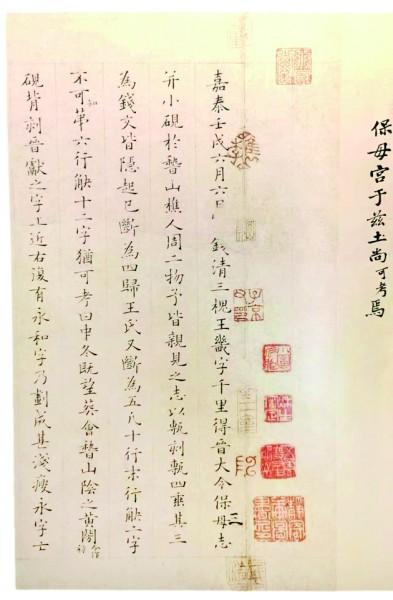 保母宮于茲土尚可考焉
嘉泰壬戌六月六日 錢清三槐王畿字千里得晉大令保母志
并小硯於稽山樵人周二物予皆親見之志以甎刻甎四垂其三
為錢文皆隱起已斷為四歸王氏又斷為五凡十行末行缺二字
不可知弟六行缺十二字猶可考曰中冬既望葬會稽山陰之黃閍
硯背刻晉獻之字上近右復有永和字乃劃成甚淺瘦永字亡